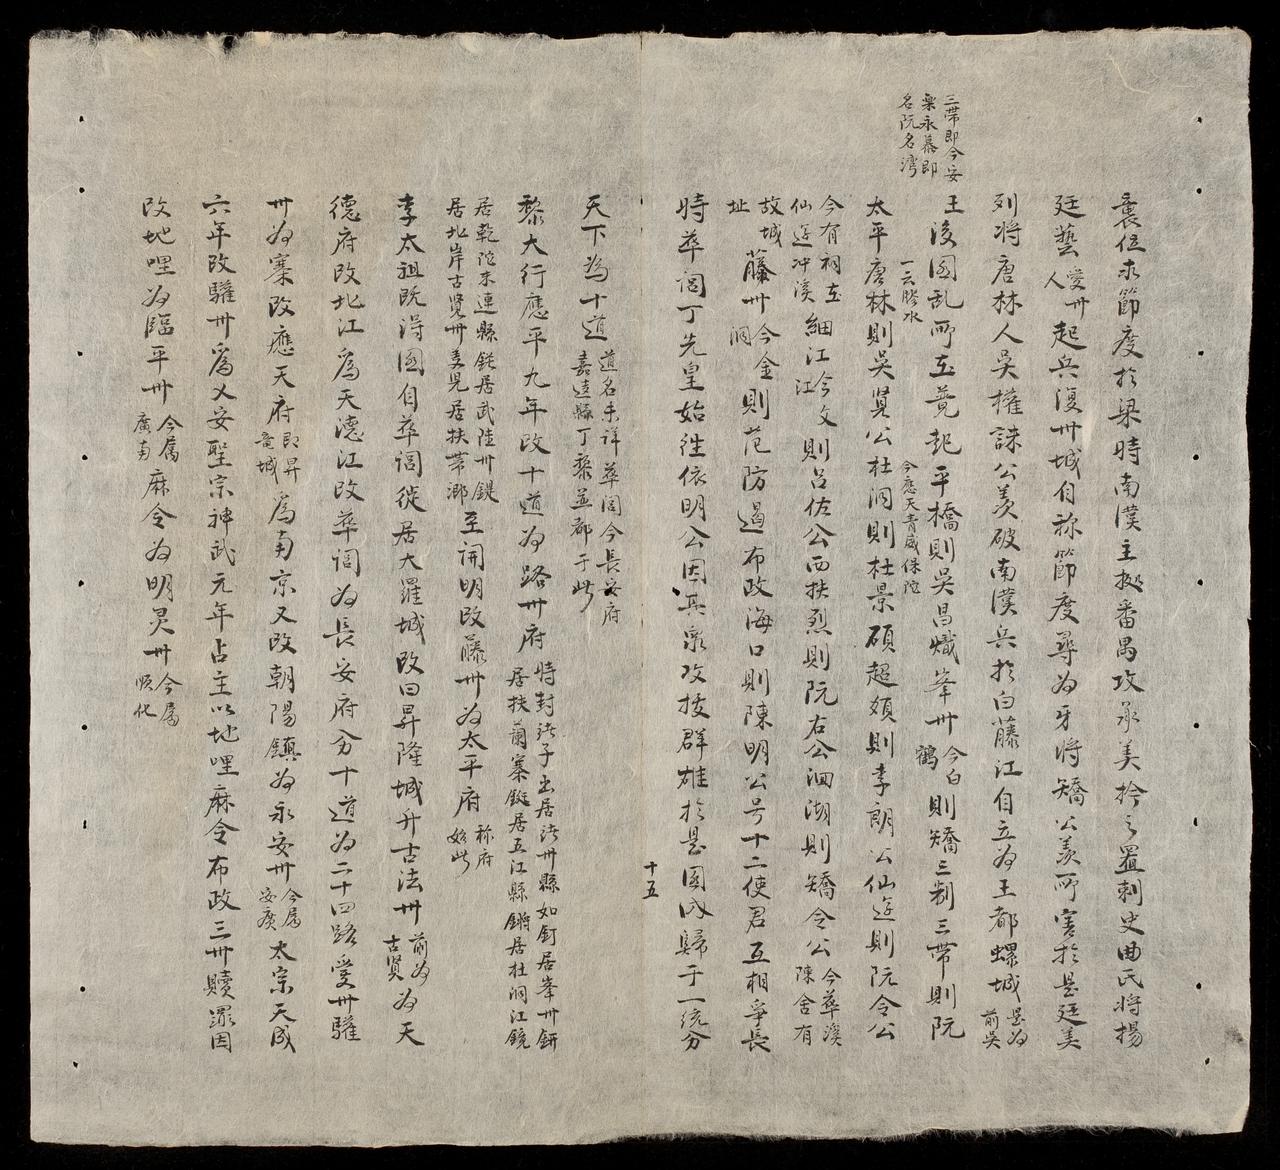 三帶即今安
樂永慕即
名阮名灣
襲位求節度於梁時南漢主據番禺攻承美擒之置刺史曲氏將楊
廷藝愛州人起兵復州城自称節度尋为牙將矯公羨所害於是廷美
列將唐林人吳權誅公羨破南漢兵於白藤江自立为王都螺城是为前吳
王後國乱所在競起平橋則吳昌熾峯州今白鶴則矯三制三帶則阮
太平一云勝水唐林則吳賢公今應天青威保陀杜洞則杜景碩超𩔖則李朗公仙遊則阮令公
今有祠在仙遊冲溪細江今文江則呂佐公西扶烈則阮右公洄湖則矯令公今華溪陳舍有
故城址藤州今金洞則范防遏布政海口則陳明公号十二使君互相爭長
時華閭丁先皇始徃依明公因其衆攻拔群雄於是國氏歸于一統分
十五
天下為十道道名未詳華閭今長安府嘉遠縣丁黎並都于此
黎大行應平九年改十道为路州府時封諸子出居諸州縣如釘居峯州鉼居扶蘭寨鋋居五江縣鏘居杜洞江鏡
居乾陀末連縣鋩居武陸州鍉居北岸古覽州養兒居扶帶鄉至開明改藤州为太平府称府始此
李太祖既得國自華閭徙居大羅城改曰昇隆城升古法州前为古覽为天
德府改北江爲天德江改華閭为長安府分十道为二十四路愛州驩
州为寨改應天府即昇竜城爲南京又改朝陽鎮为永安州今属安廣太宗天成
六年改驩州爲乂安聖宗神武元年占主以地哩麻令布政三州贖罪因
改地哩为臨平州今属廣南麻令为明灵州今属順化